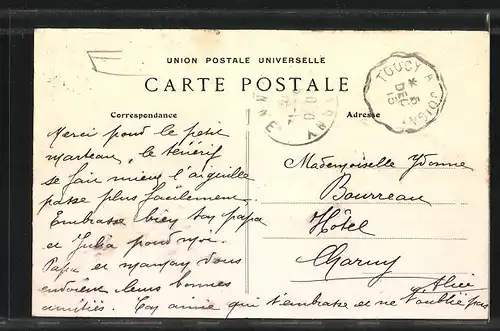 UNION POSTALE UNIVERSELLE
CARTE POSTALE
TOUCY A JOIGNY
* 5
DEC
15
YONNE
Correspondance
Adresse
Merci pour le petit
marteau, le ténérif
se fait mieux l'aiguille
passe plus facilement.
Embrasse bien ton papa
et Julia pour moi.
Papa et maman vous
envoient leurs bonnes
amitiés. Ton amie qui t'embrasse et ne t'oublie pas
Alice
Mademoiselle Yvonne
Bourreau
Hôtel
Charny